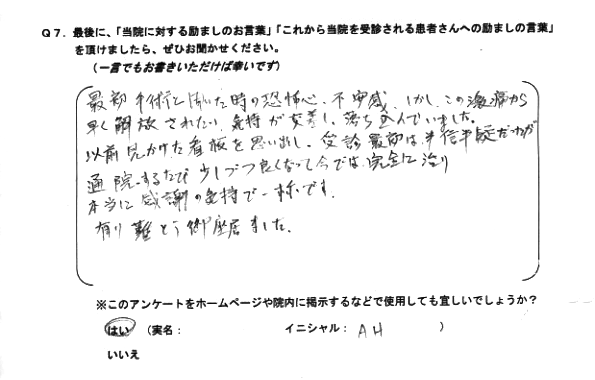 Q7．最後に、「当院に対する励ましのお言葉」「これから当院を受診される患者さんへの励ましの言葉」
を頂けましたら、ぜひお聞かせください。
（一言でもお書きいただければ幸いです）
最初手術と聞いた時の恐怖心、不安感、しかし、この激痛から
早く解放されたい気持が交差し、落ち込んでいました。
以前見かけた看板を思い出し、受診最初は半信半疑だったが
通院するたび少しづつ良くなって今では完全に治り
本当に感謝の気持で一杯です。
有り難とう御座居ました。
※このアンケートをホームページや院内に掲示するなどで使用しても宜しいでしょうか？
はい （実名： イニシャル： AH ）
いいえ